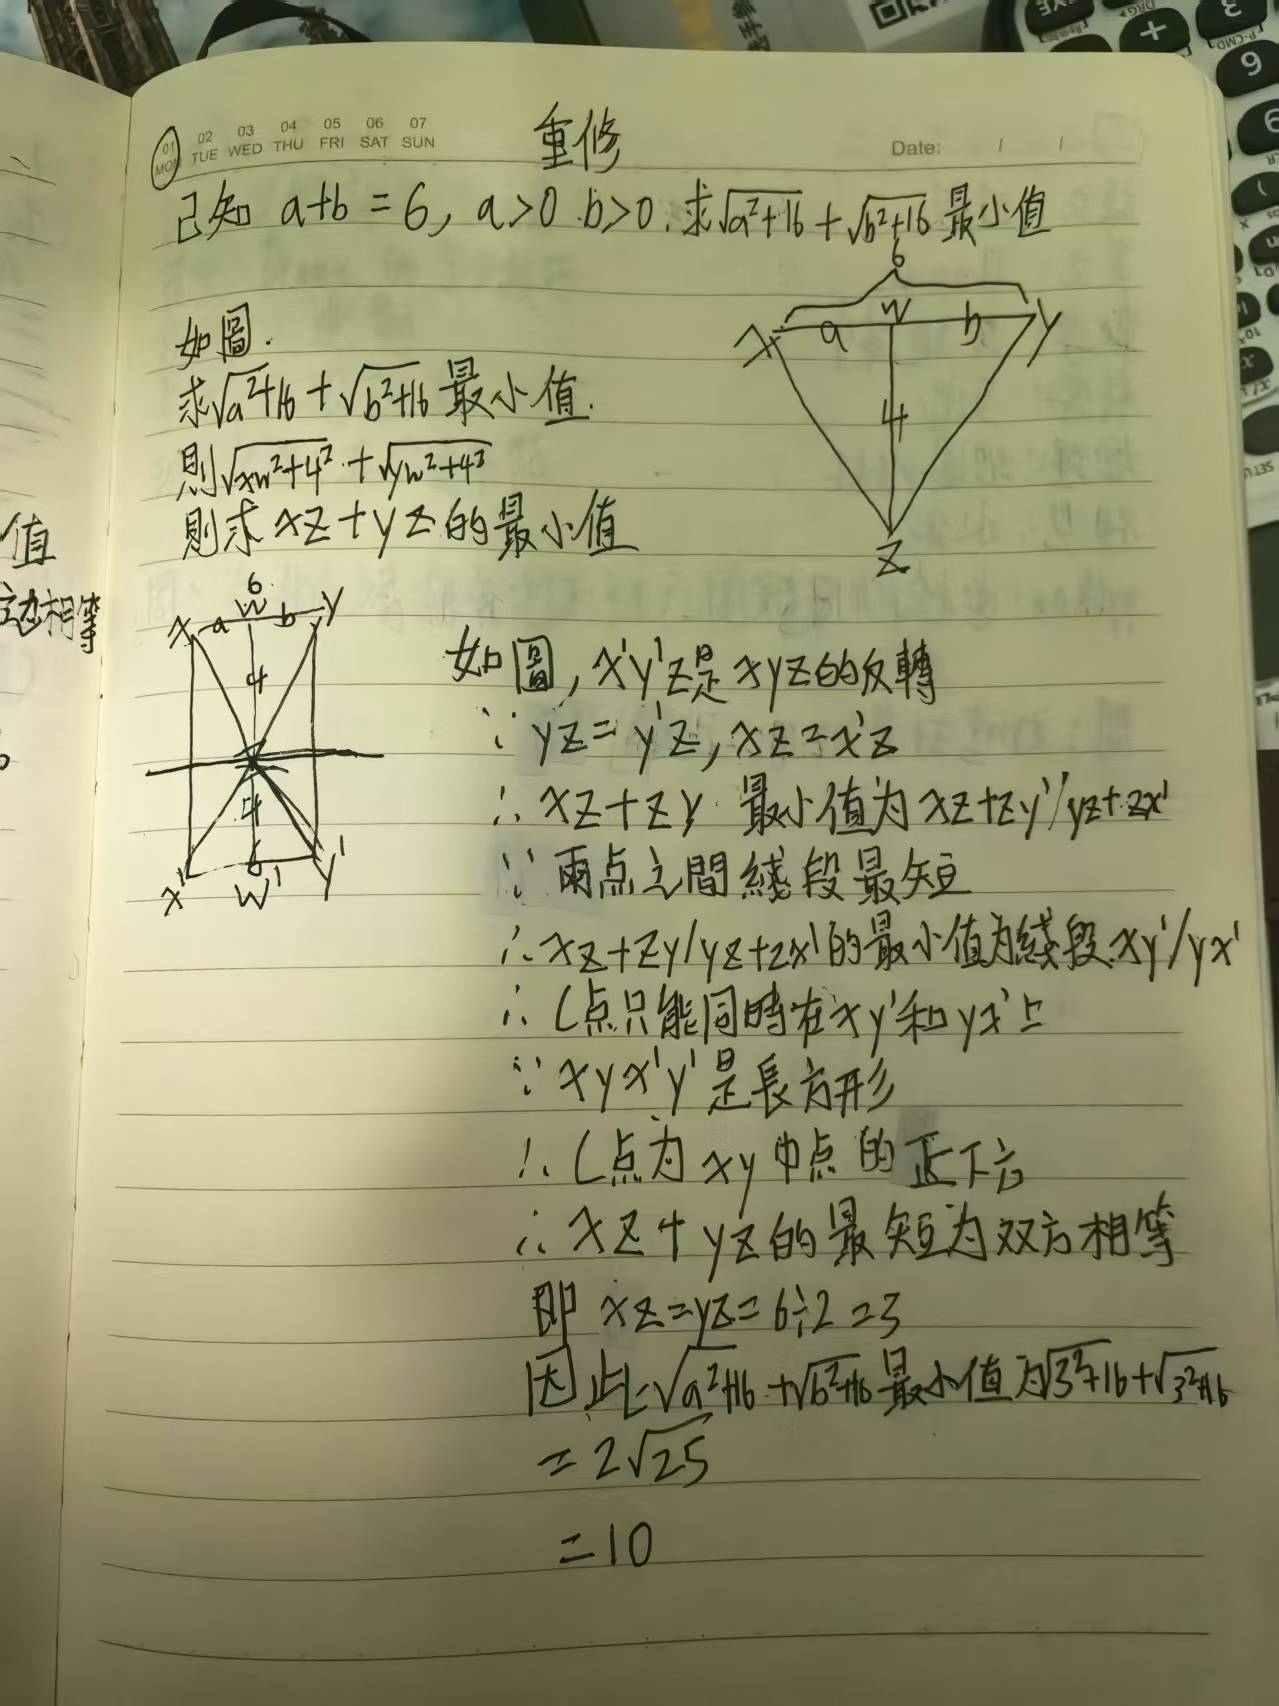 01 02 03 04 05 06 07
MON TUE WED THU FRI SAT SUN
重修
Date: / /
己知 a+b=6, a>0 b>0. 求√a²+16 + √b²+16 最小值
6
X a W b Y
4
Z
如圖.
求√a²+16 + √b²+16 最小值.
則√xw²+4² + √yw²+4²
則求 xz+yz 的最小值
6
X a W b Y
4
Z
4
6
X' W' Y'
如圖, x'y'z是xyz的反轉
∵ yz=y'z, xz=x'z
∴ xz+zy 最小值为 xz+zy'/yz+zx'
∵ 兩点之間綫段最短
∴ xz+zy/yz+zx'的最小值为綫段xy'/yx'
∴ C点只能同時在xy'和yx'上
∵ xyx'y'是長方形
∴ C点为xy中点的正下方
∴ xz+yz的最短为双方相等
即 xz=yz=6÷2=3
因此√a²+16+√b²+16 最小值为√3²+16+√3²+16
=2√25
=10
值
边相等